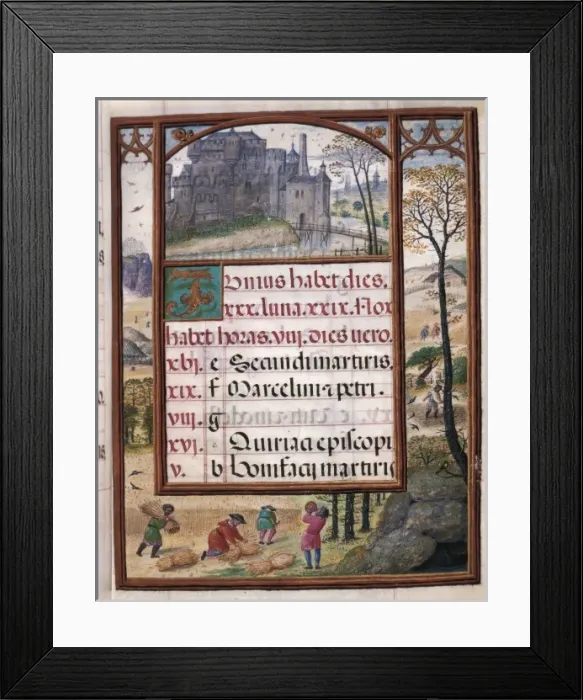 Iunius habet dies.
xxx. luna. xxix. Nox
habet horas. viij. dies uero.
xbj. e Secundi martiris.
xix. f Marcelini ⁊ petri.
viij. g
xvj. Quiriaci episcopi
v. b bonifacij martiris